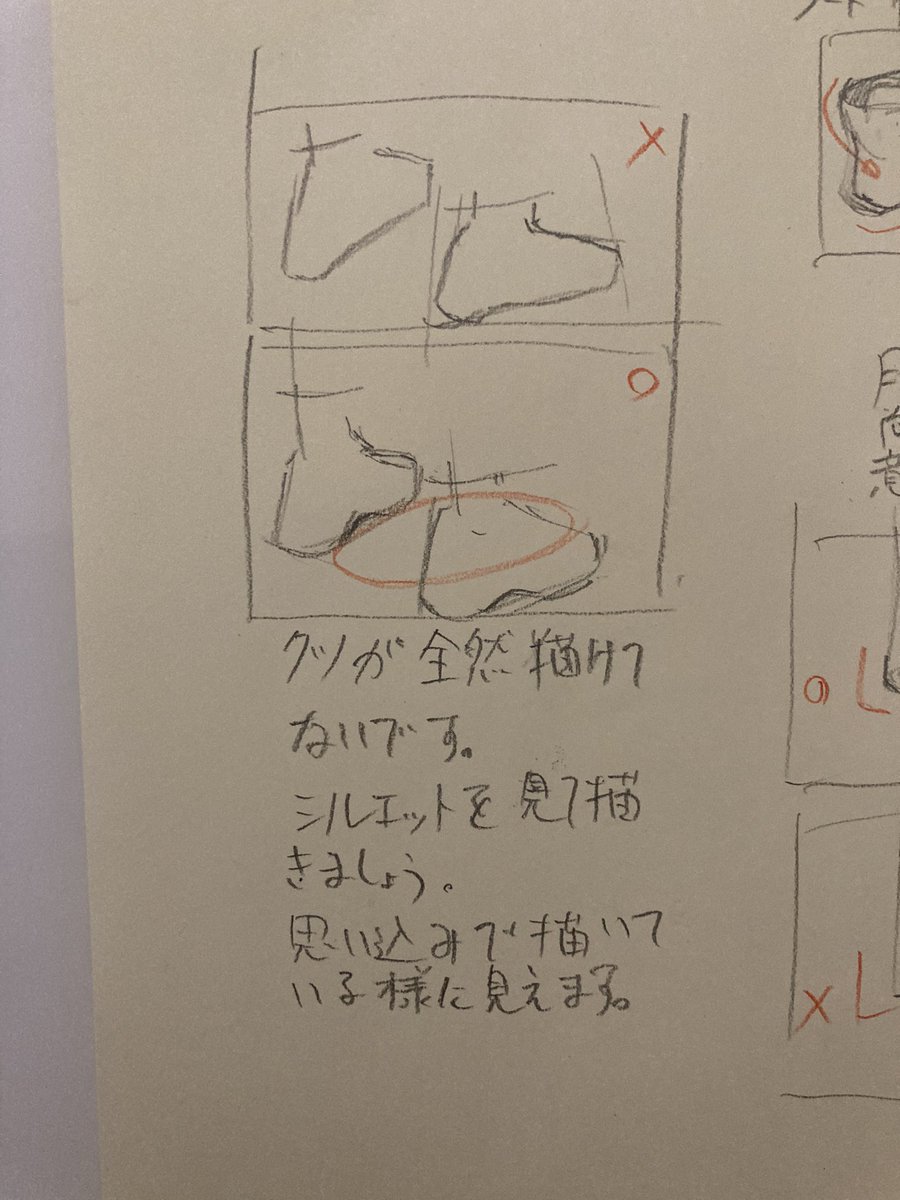 クツが全然描けて
ないです。
シルエットを見て描
きましょう。
思い込みで描いて
いる様に見えます。